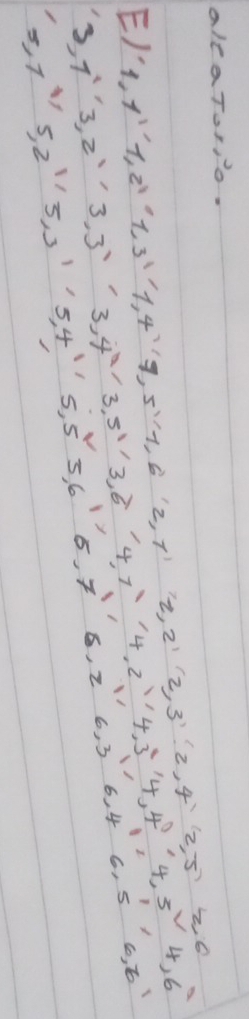 aleatorio.
E) '1,1' '1,2' '1,3' '1,4' '1,5' '1,6' '2,1' '2,2' '2,3' '2,4' '2,5' '2,6'
'3,1' '3,2' '3,3' '3,4' '3,5' '3,6' '4,1' '4,2' '4,3' '4,4' '4,5' '4,6'
'5,1' '5,2' '5,3' '5,4' '5,5' 5,6' '6,1' '6,2 6,3' '6,4' '6,5' '6,6'